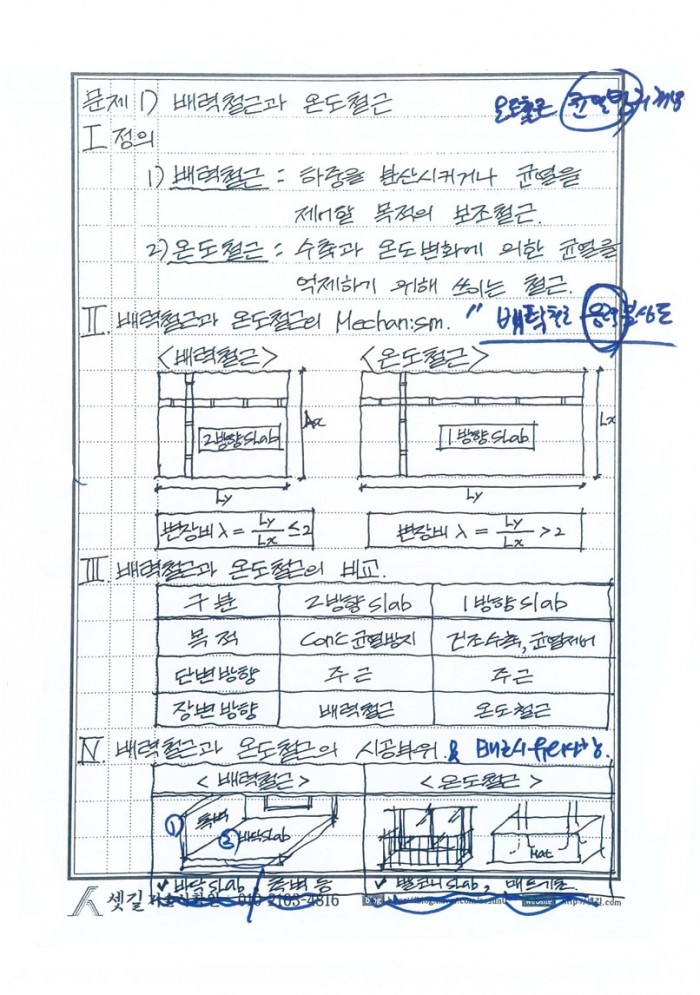 문제 1) 배력철근과 온도철근
온도철근 균열
I 정의
1) 배력철근 : 하중을 분산시키거나 균열을
제어할 목적의 보조철근.
2) 온도철근 : 수축과 온도변화에 의한 균열을
억제하기 위해 쓰이는 철근.
II. 배력철근과 온도철근의 Mechanism.
<배력철근> <온도철근>
2방향 Slab 1방향 Slab Lx
Ly Ly
변장비 λ = Ly/Lx ≤ 2 변장비 λ = Ly/Lx > 2
III 배력철근과 온도철근의 비교.
구분 2방향 Slab 1방향 Slab
목적 Conc 균열방지 건조수축, 균열제어
단변방향 주근 주근
장변방향 배력철근 온도철근
IV. 배력철근과 온도철근의 시공부위 &
<배력철근> <온도철근>
① 옥벽 ② 바닥 Slab Mat
✓ 바닥 Slab, 옥벽 등 ✓ 발코니 Slab, 매트기초.
셋길 010-2103-4816